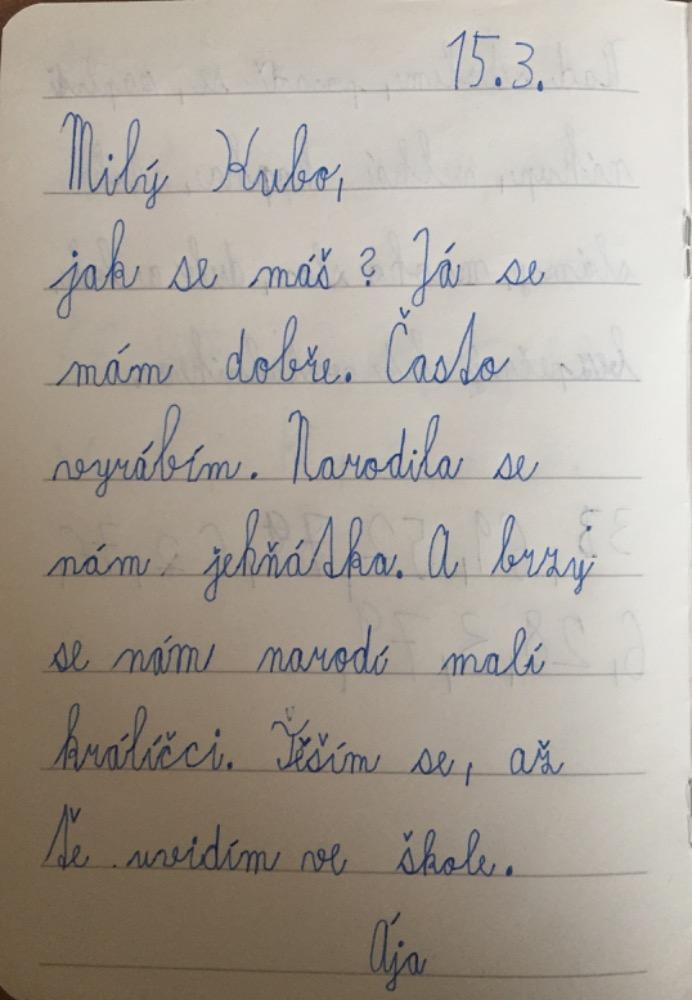 15.3.
Milý Kubo,
jak se máš? Já se
mám dobře. Často
vyrábím. Narodila se
nám jehňátka. A brzy
se nám narodí malí
králíčci. Těším se, až
tě uvidím ve škole.
Ája